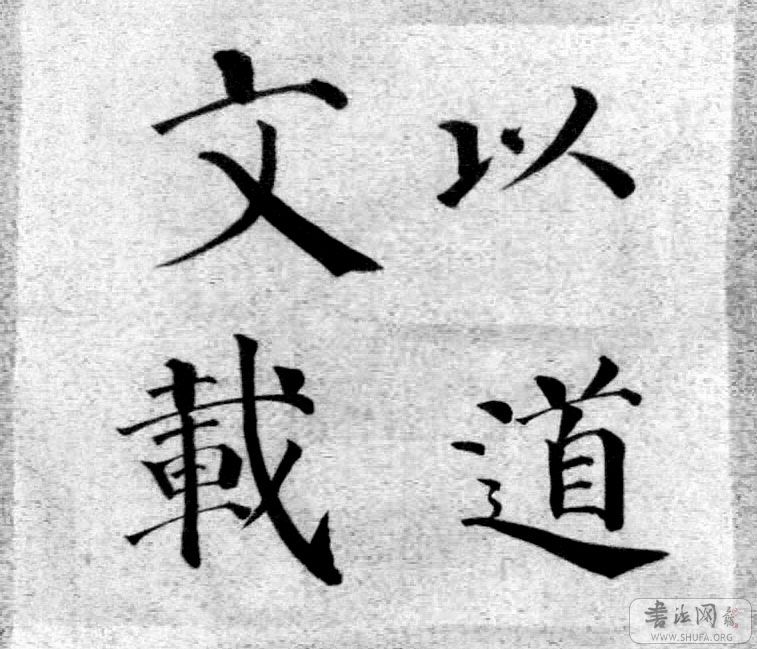 文以
載道
書法网
WWW.SHUFA.ORG